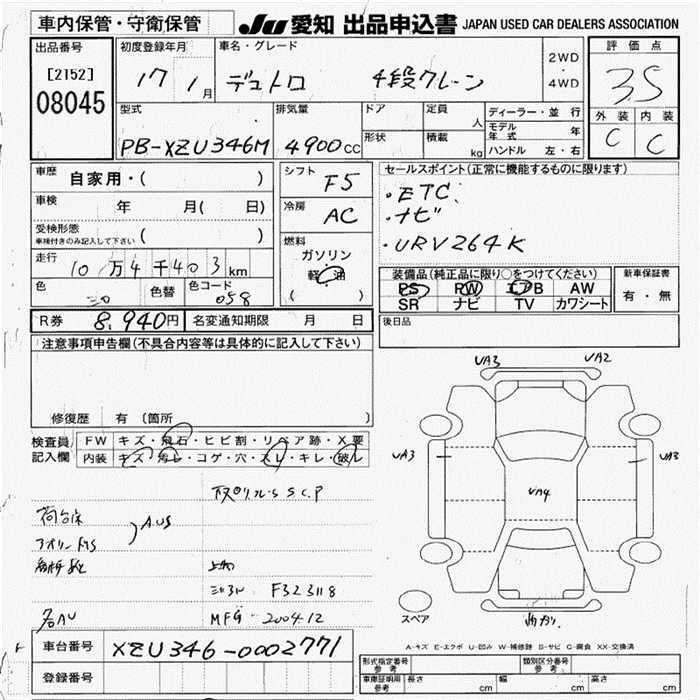 車内保管・守衛保管
JU 愛知 出品申込書 JAPAN USED CAR DEALERS ASSOCIATION
出品番号
[2152]
08045
初度登録年月
17 1月
車名・グレード
デュトロ 4段クレーン
2WD
・
4WD
評価点
3.5
外装 内装
C C
型式
PB-XZU346M
排気量
4900cc
ドア
形状
定員
人
積載
kg
ディーラー・並行
モデル年式 年
ハンドル 左・右
車歴 自家用・( )
車検 年 月( 日)
受検形態
車検付きのみ記入して下さい ( )
走行 10万4千403km
色 色替 色コード
058
シフト F5
冷房 AC
燃料
ガソリン
軽油
( )
セールスポイント(正常に機能するものに限ります)
・ETC
・ナビ
・URV264K
装備品(純正品に限り○をつけてください)
PS PW エアB AW
SR ナビ TV カワシート
新車保証書
有・無
後日品
R券 8,940円 名変通知期限 月 日
注意事項申告欄(不具合内容等は具体的に記入して下さい)
修復歴 有 (箇所 )
検査員記入欄
FW キズ・飛石・ヒビ割・リペア跡・X要
内装 キズ・汚レ・コゲ・穴・スレ・キレ・破レ
S.C.P
荷台床
アオリ
AUS
F323118
MFG-2004.12
UA3 UA2
UA3 UA3
UA4
スペア
A-キズ E-エクボ U-凹み W-補修跡 S-サビ C-腐食 XX-交換済
車台番号 XZU346-0002771
登録番号
形式指定番号 参考
類別区分番号 参考
車庫証明用 参考 長さ cm 幅 cm 高さ cm